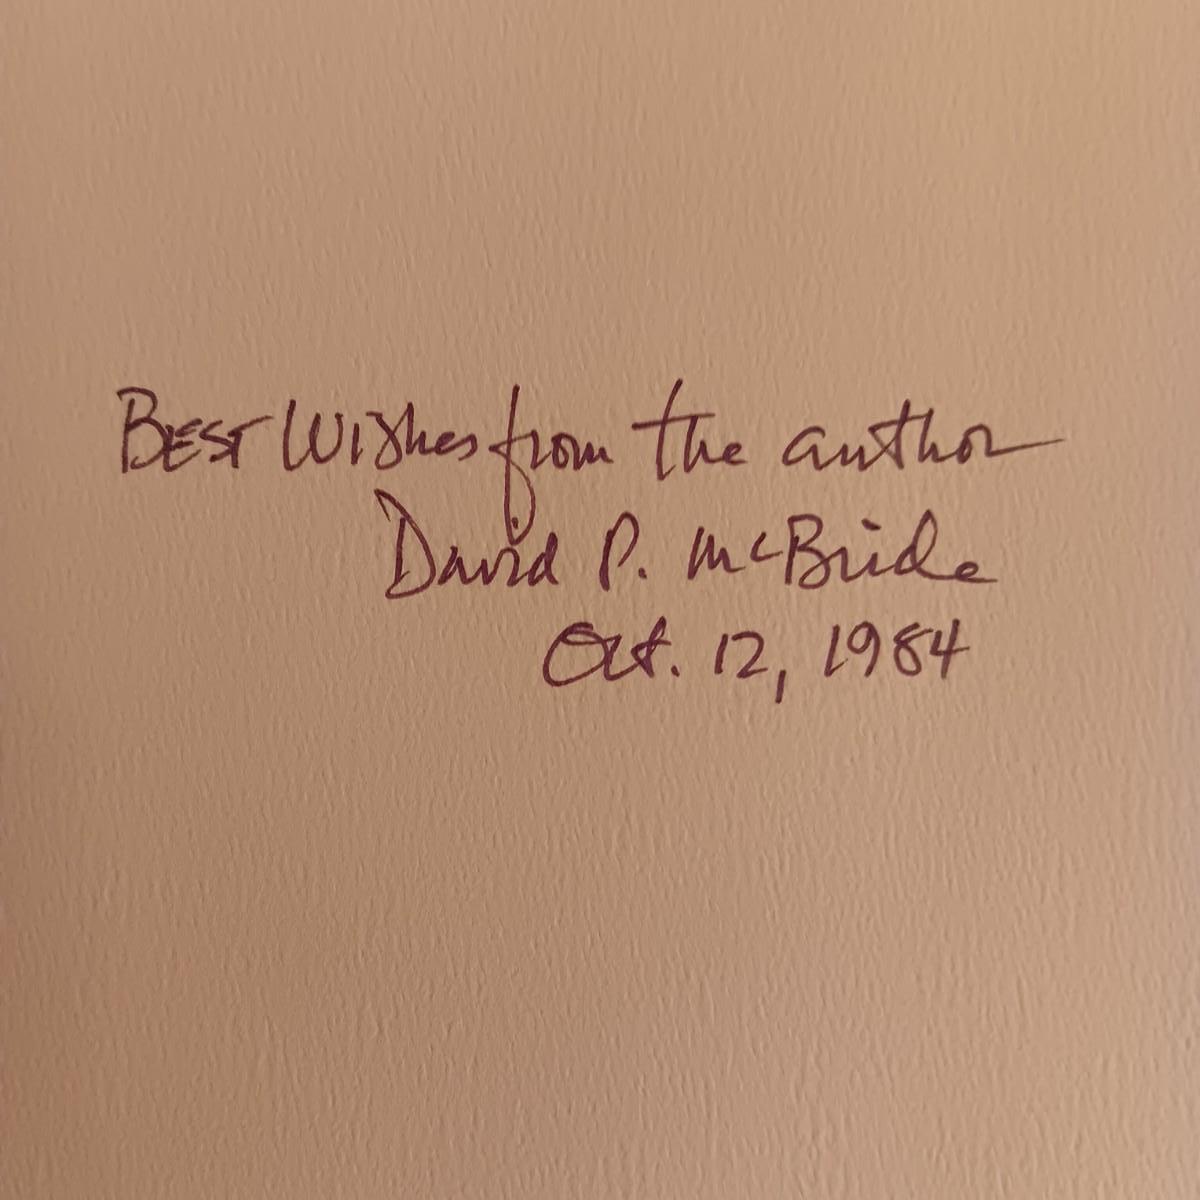 Best Wishes from the author
David P. McBride
Oct. 12, 1984